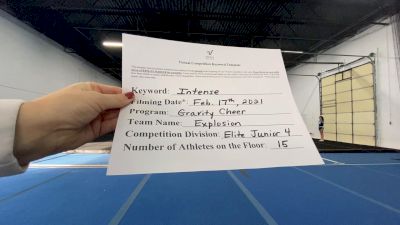 Virtual Competition Keyword Template
Keyword: Intense
Filming Date*: Feb. 17th, 2021
Program: Gravity Cheer
Team Name: Explosion
Competition Division: Elite Junior 4
Number of Athletes on the Floor: 15